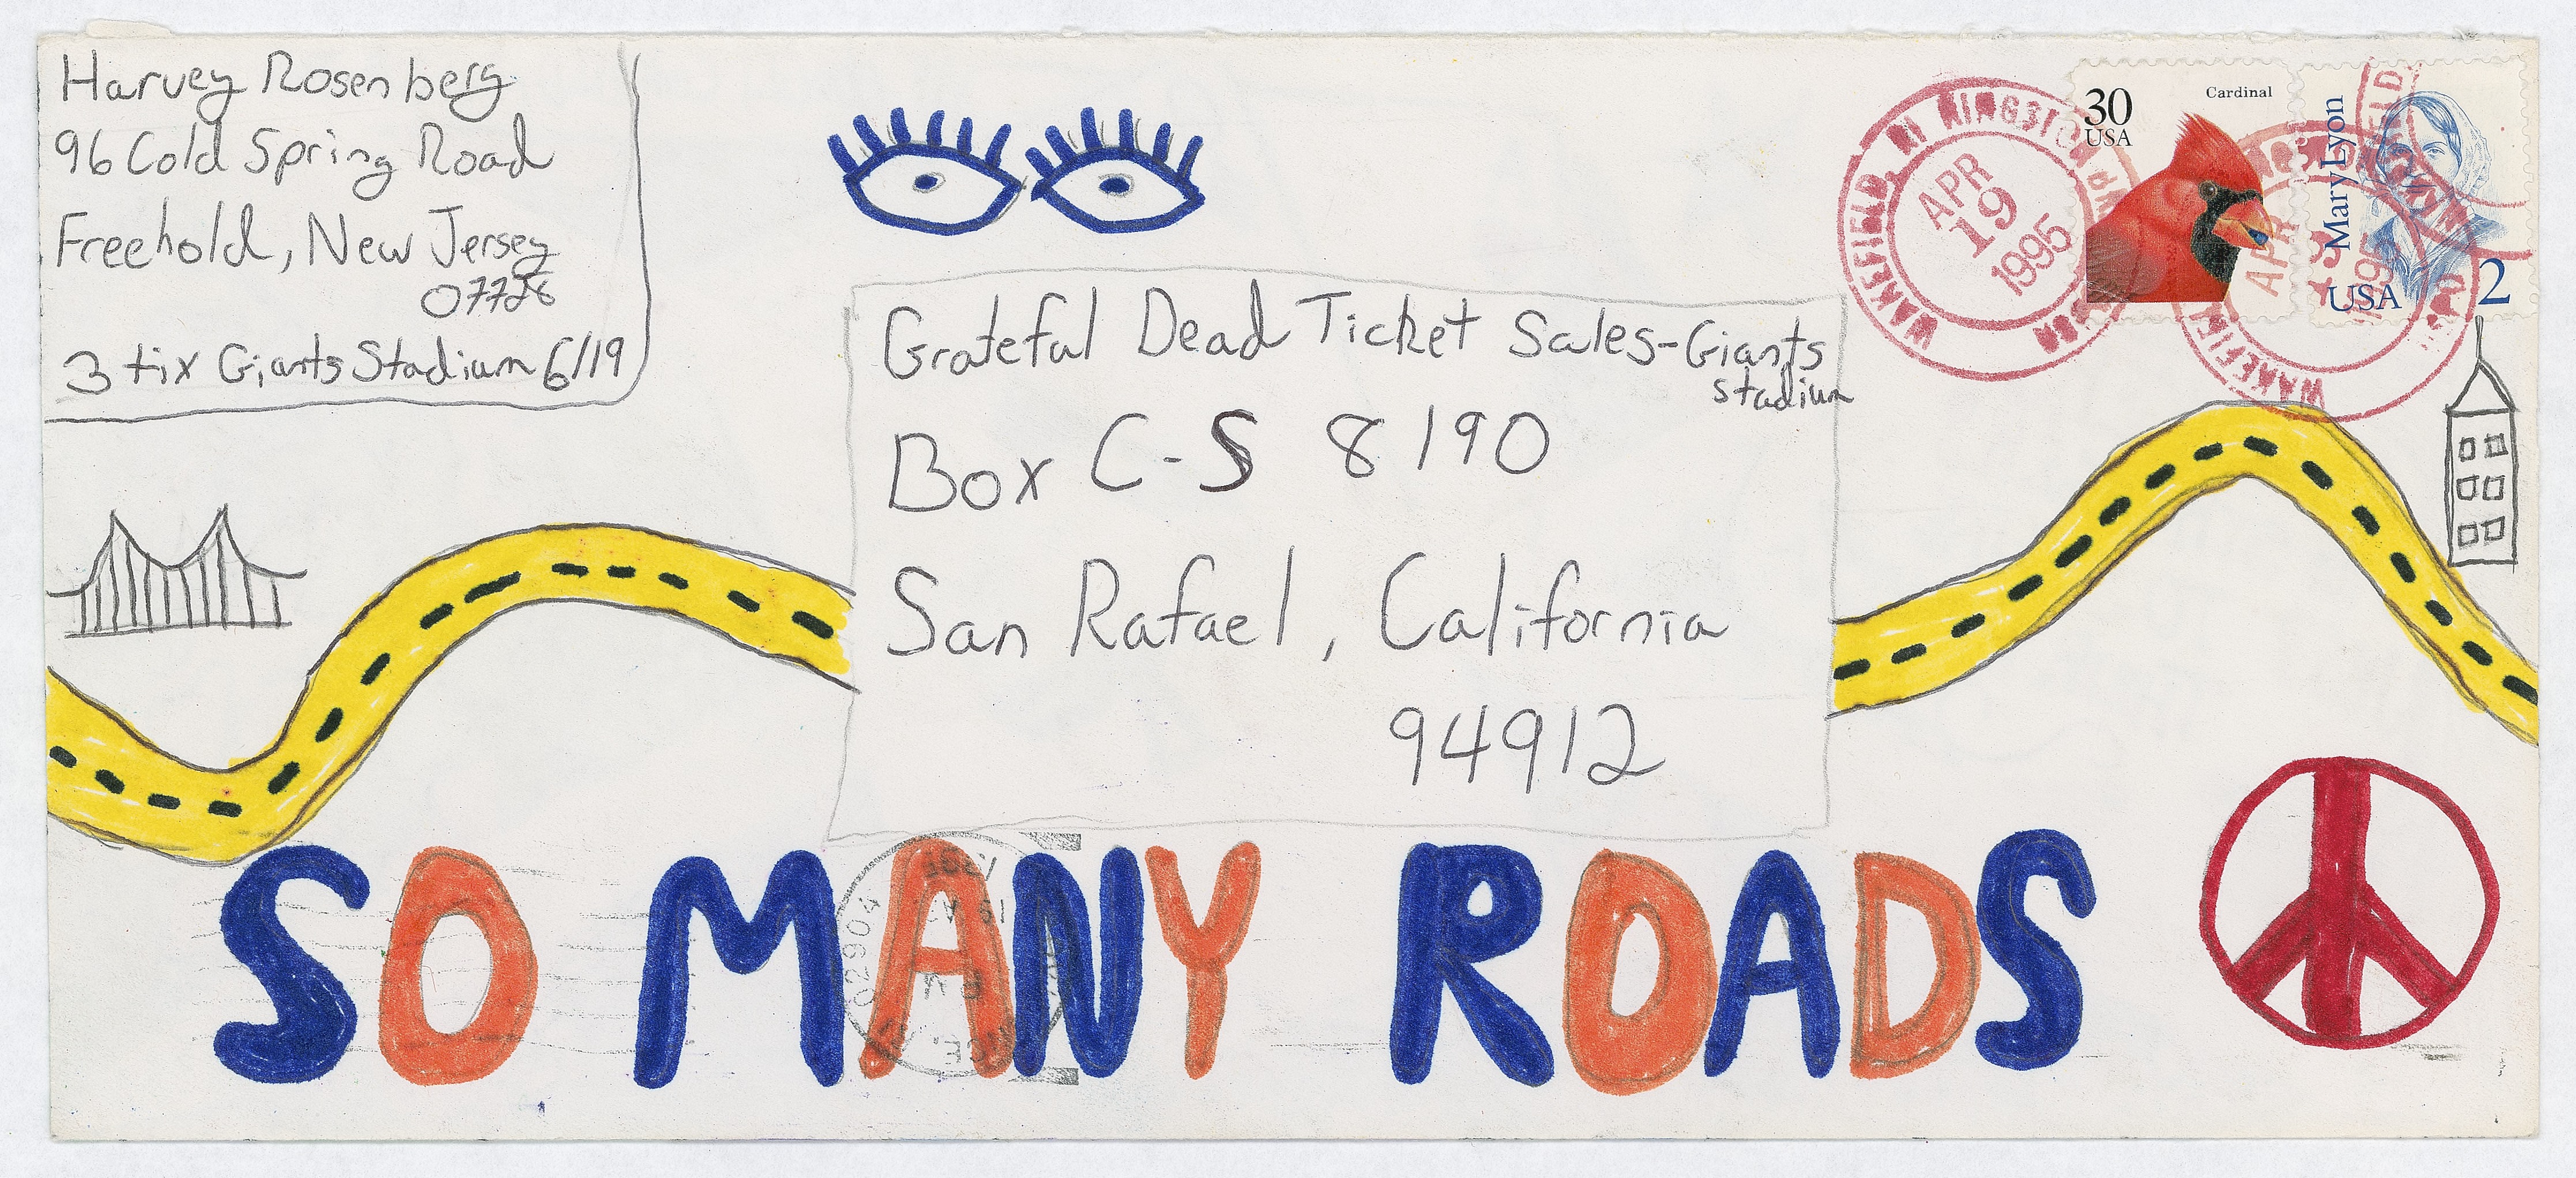 Harvey Rosenberg
96 Cold Spring Road
Freehold, New Jersey
07728
3 tix Giants Stadium 6/19
Grateful Dead Ticket Sales-Giants
Stadium
Box C-S 8190
San Rafael, California
94912
WAKEFIELD, RI KINGSTON
APR
19
1995
30
USA
Cardinal
Mary Lyon
USA 2
APR
1995
WAKEFIELD
SO MANY ROADS
02904